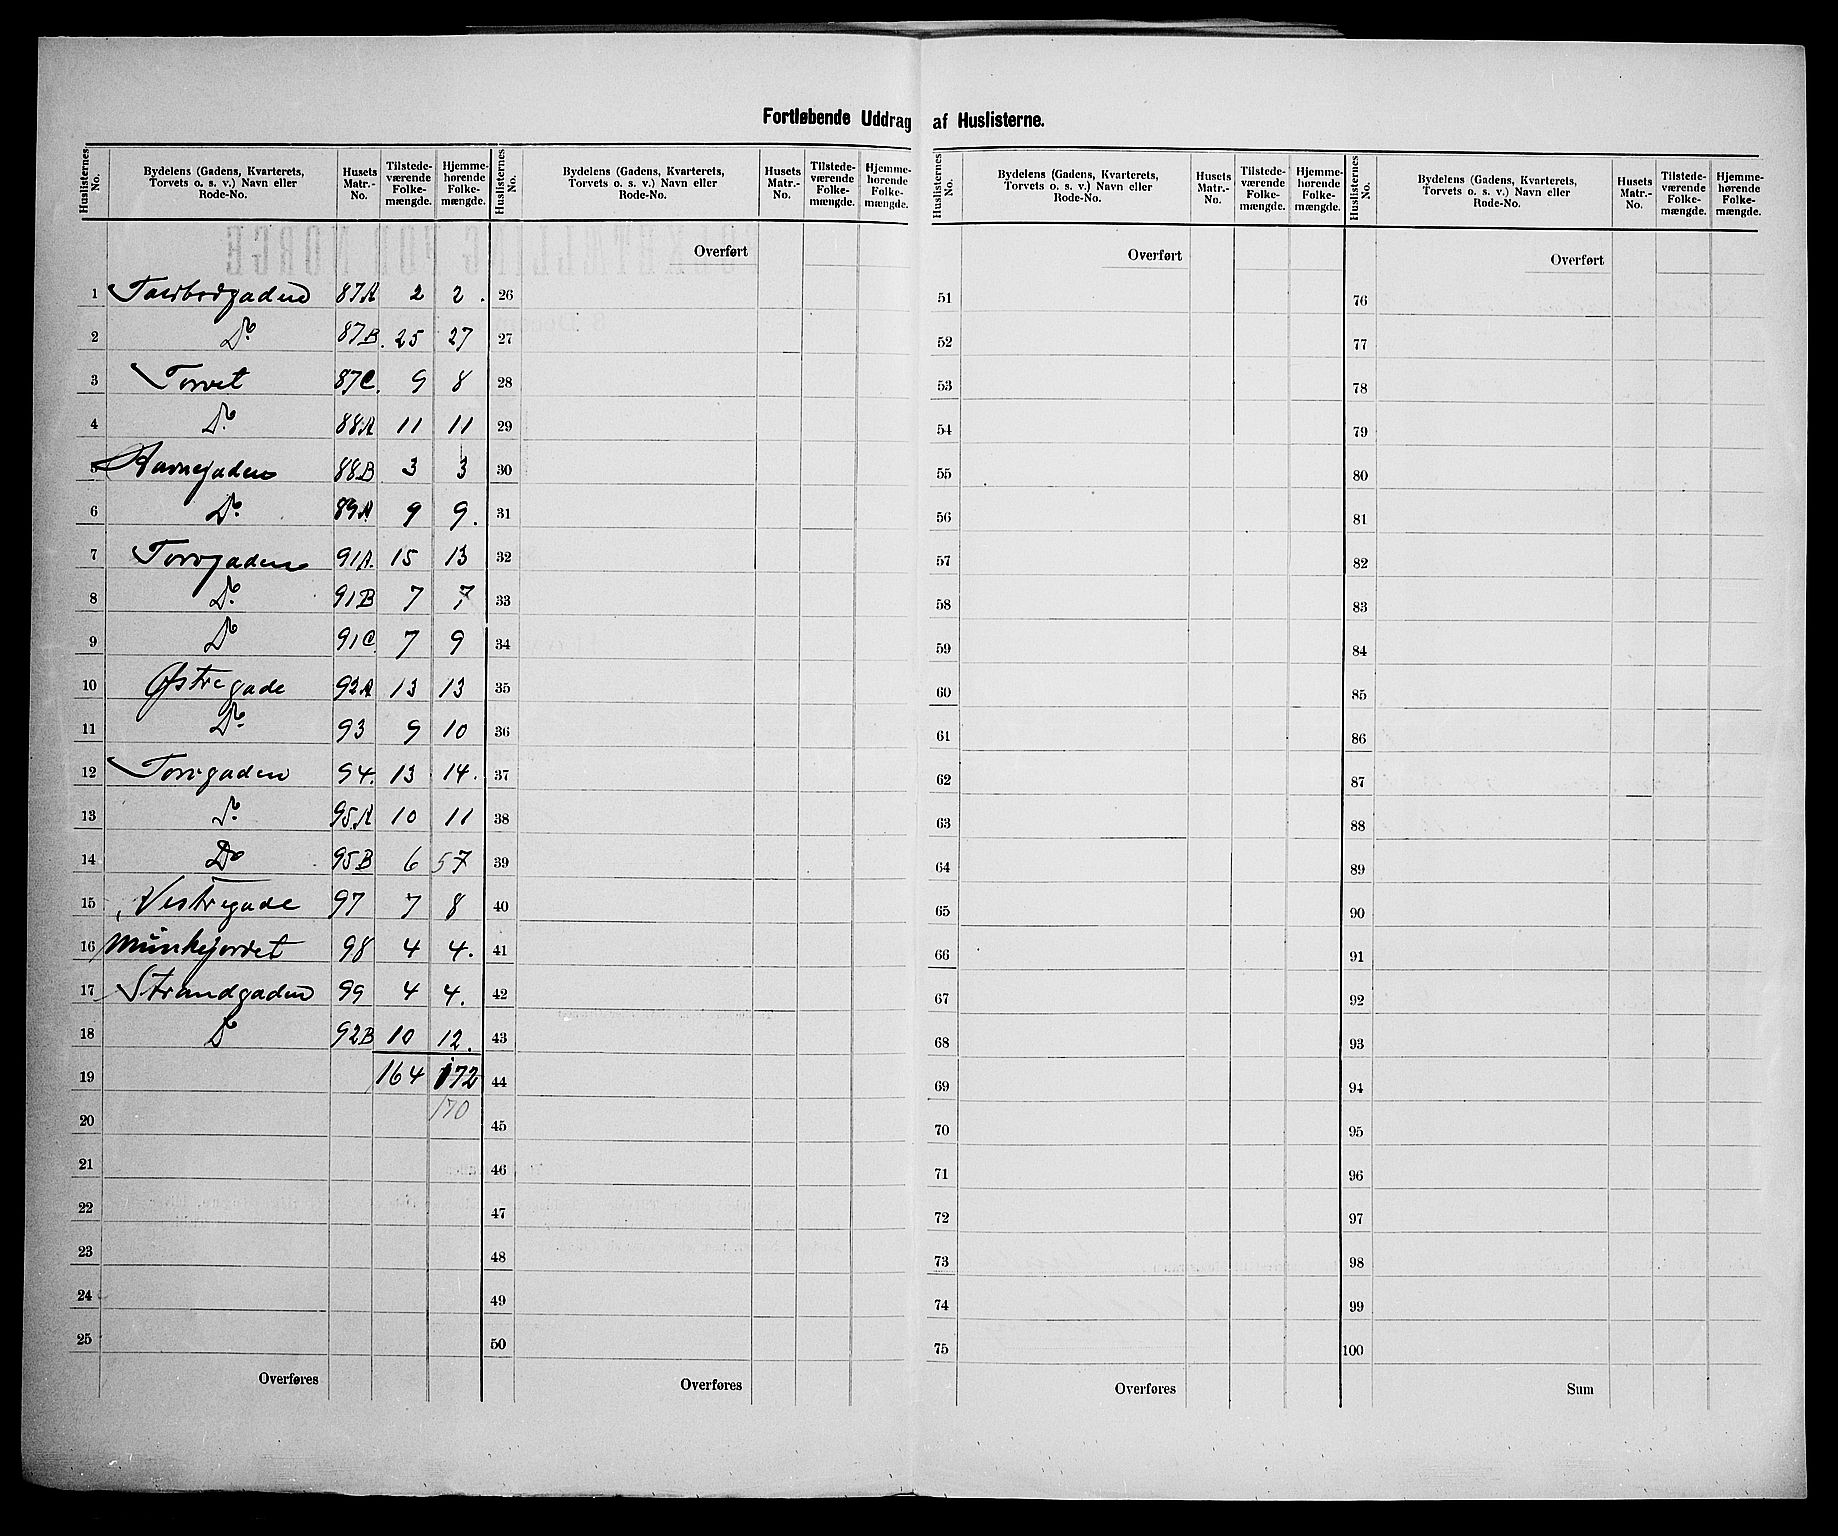 Fortløbende Uddrag af Huslisterne.
Huslisternes No. | Bydelens (Gadens, Kvarterets, Torvets o. s. v.) Navn eller Rode-No. | Husets Matr.-No. | Tilstedeværende Folkemængde. | Hjemmehørende Folkemængde.
Huslisternes No. | Bydelens (Gadens, Kvarterets, Torvets o. s. v.) Navn eller Rode-No. | Husets Matr.-No. | Tilstedeværende Folkemængde. | Hjemmehørende Folkemængde.
Huslisternes No. | Bydelens (Gadens, Kvarterets, Torvets o. s. v.) Navn eller Rode-No. | Husets Matr.-No. | Tilstedeværende Folkemængde. | Hjemmehørende Folkemængde.
Huslisternes No. | Bydelens (Gadens, Kvarterets, Torvets o. s. v.) Navn eller Rode-No. | Husets Matr.-No. | Tilstedeværende Folkemængde. | Hjemmehørende Folkemængde.
Overført Overført Overført
1 87A 2 2. 26 51 76
2 Do 87B. 25 27 27 52 77
3 Torvet 87C. 9 8 28 53 78
4 Do 88A 11 11 29 54 79
5 Havnegaden 88B 3 3 30 55 80
6 Do 89A 9 9. 31 56 81
7 Torvgaden 91A. 15 13 32 57 82
8 Do 91B 7 7 33 58 83
9 Do 91C 7 9 34 59 84
10 Østregade 92A 13 13 35 60 85
11 Do 93 9 10 36 61 86
12 Torvgaden 94. 13 14. 37 62 87
13 Do 95A 10 11 38 63 88
14 Do 95B 6 57 39 64 89
15 Vestregade 97 7 8 40 65 90
16 Munkejordet 98 4 4. 41 66 91
17 Strandgaden 99 4 4. 42 67 92
18 Do 92B 10 12. 43 68 93
19 164 172 44 69 94
20 170 45 70 95
21 46 71 96
22 47 72 97
23 48 73 98
24 49 74 99
25 50 75 100
Overføres Overføres Overføres Sum